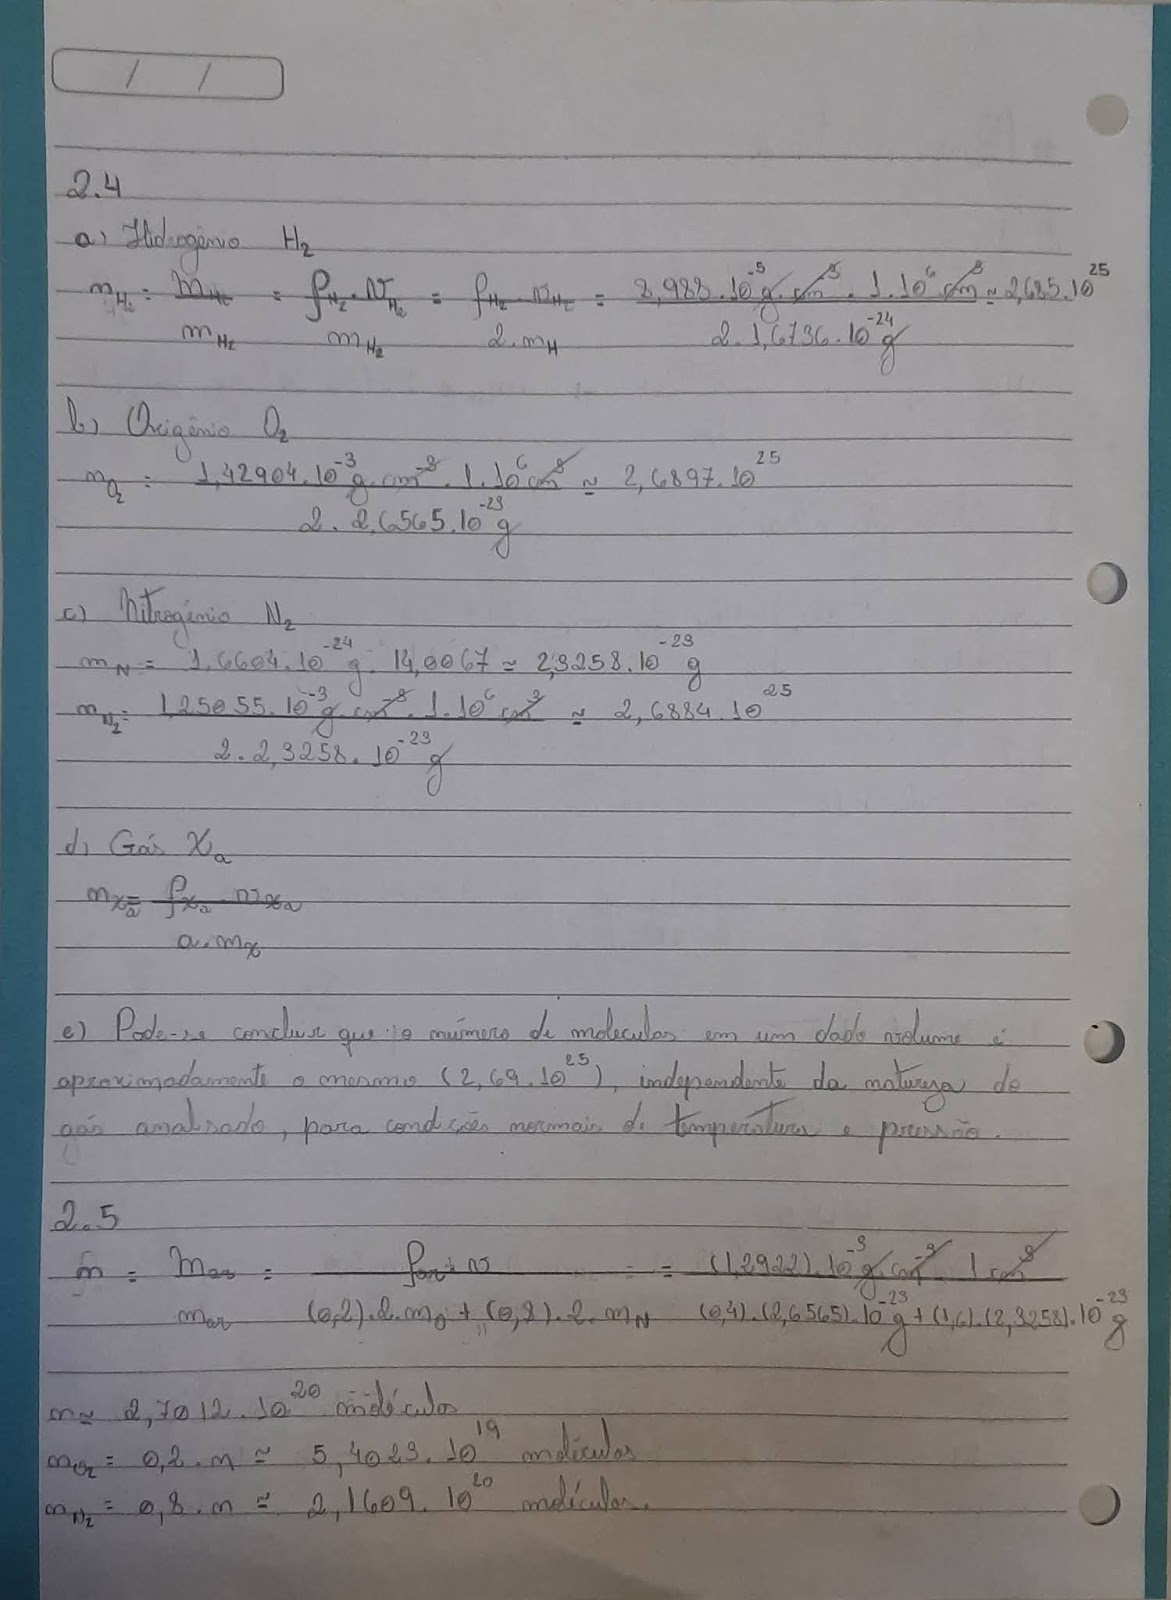 / /
2.4
a) Hidrogênio H₂
n_H₂ = M_H₂ / m_H₂ = ρ_H₂ . v_H₂ / m_H₂ = ρ_H₂ . v_H₂ / 2.m_H = 8,988.10⁻⁵ g.cm⁻³ . 1.10⁶ cm³ / 2.1,6736.10⁻²⁴ g ≈ 2,685.10²⁵
b) Oxigênio O₂
n_O₂ = 1,42904.10⁻³ g.cm⁻³ . 1.10⁶ cm³ / 2.2,6565.10⁻²³ g ≈ 2,6897.10²⁵
c) Nitrogênio N₂
m_N = 1,6604.10⁻²⁴ g . 14,0067 ≈ 2,3258.10⁻²³ g
n_N₂ = 1,25055.10⁻³ g.cm⁻³ . 1.10⁶ cm³ / 2.2,3258.10⁻²³ g ≈ 2,6884.10²⁵
d) Gás Xₐ
n_Xₐ = ρ_Xₐ . v_Xₐ / a.m_X
e) Pode-se concluir que o número de moleculas em um dado volume é
aproximadamente o mesmo (2,69.10²⁵), independente da natureza do
gás analisado, para condições normais de temperatura e pressão.
2.5
n = M_ar / m_ar = ρ_ar . v / (0,2).2.m_O + (0,8).2.m_N = (1,2922).10⁻³ g.cm⁻³ . 1 cm³ / (0,4).(2,6565).10⁻²³ g + (1,6).(2,3258).10⁻²³ g
n ≈ 2,7012.10²⁰ moléculas
n_O₂ = 0,2.n ≈ 5,4023.10¹⁹ moléculas
n_N₂ = 0,8.n ≈ 2,1609.10²⁰ moléculas.